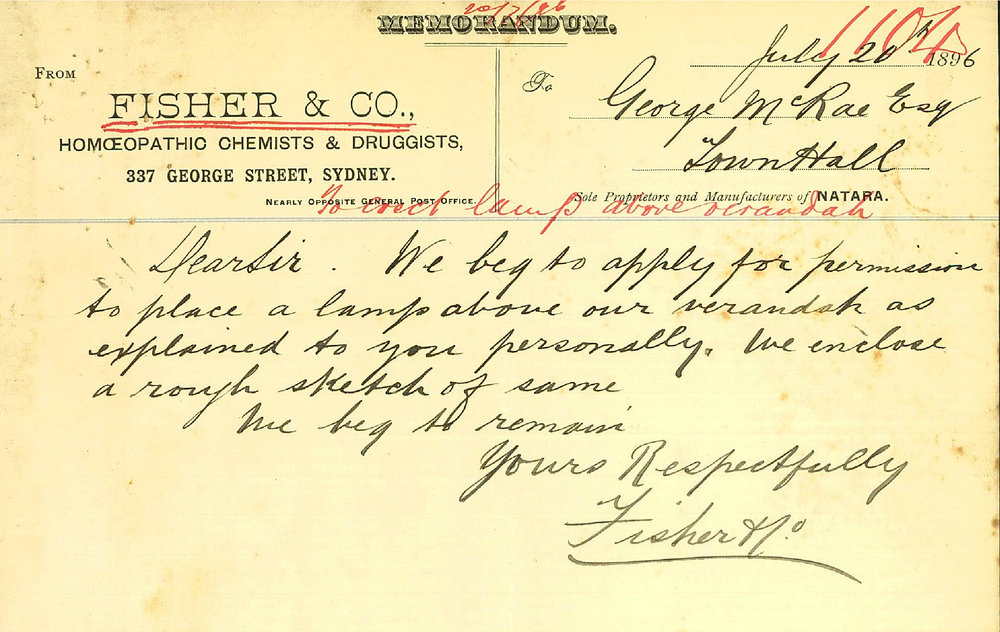 20/7/96
MEMORANDUM.
1104
July 20th 1896
FROM
FISHER & CO.,
HOMŒOPATHIC CHEMISTS & DRUGGISTS,
337 GEORGE STREET, SYDNEY.
NEARLY OPPOSITE GENERAL POST OFFICE.
To
George McRae Esq
Town Hall
Sole Proprietors and Manufacturers of NATARA.
To erect lamp above verandah
Dear Sir. We beg to apply for permission
to place a lamp above our verandah as
explained to you personally. We enclose
a rough sketch of same
We beg to remain
Yours Respectfully
Fisher & Co